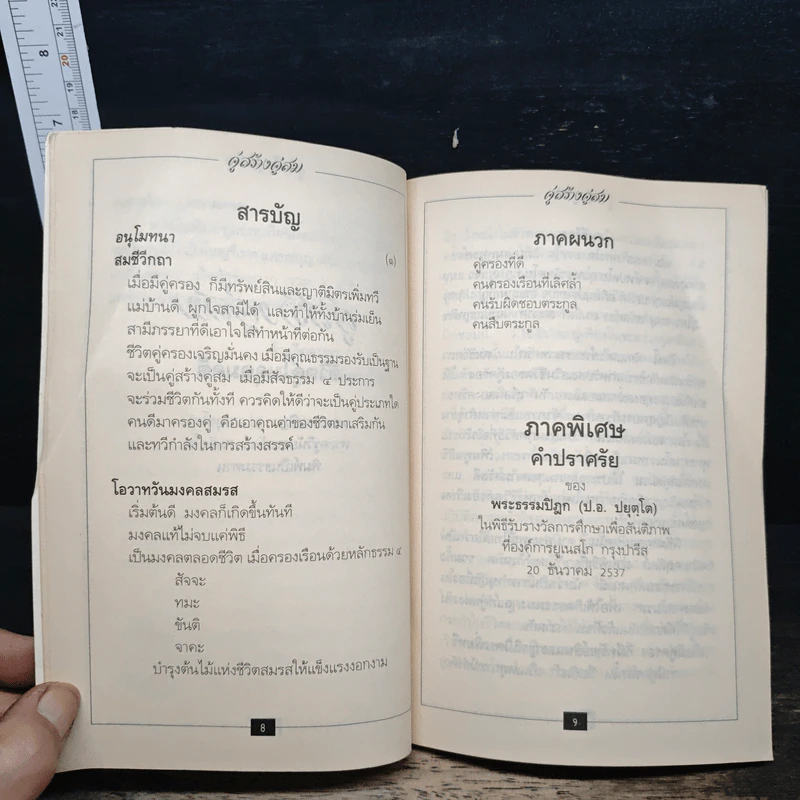 8
20
19
18
7
17
คู่สร้างคู่สม
สารบัญ
อนุโมทนา
สมชีวีกถา (๑)
เมื่อมีคู่ครอง ก็มีทรัพย์สินและญาติมิตรเพิ่มทวี
แม่บ้านดี ผูกใจสามีได้ และทำให้ทั้งบ้านร่มเย็น
สามีภรรยาที่ดีเอาใจใส่ทำหน้าที่ต่อกัน
ชีวิตคู่ครองเจริญมั่นคง เมื่อมีคุณธรรมรองรับเป็นฐาน
จะเป็นคู่สร้างคู่สม เมื่อมีสัจธรรม ๔ ประการ
จะร่วมชีวิตกันทั้งที ควรคิดให้ดีว่าจะเป็นคู่ประเภทใด
คนดีมาครองคู่ คือเอาคุณค่าของชีวิตมาเสริมกัน
และทวีกำลังในการสร้างสรรค์
โอวาทวันมงคลสมรส
เริ่มต้นดี มงคลก็เกิดขึ้นทันที
มงคลแท้ไม่จบแค่พิธี
เป็นมงคลตลอดชีวิต เมื่อครองเรือนด้วยหลักธรรม ๔
สัจจะ
ทมะ
ขันติ
จาคะ
บำรุงต้นไม้แห่งชีวิตสมรสให้แข็งแรงงอกงาม
8
คู่สร้างคู่สม
ภาคผนวก
คู่ครองที่ดี
คนครองเรือนที่เลิศล้ำ
คนรับผิดชอบตระกูล
คนสืบตระกูล
ภาคพิเศษ
คำปราศรัย
ของ
พระธรรมปิฎก (ป.อ. ปยุตฺโต)
ในพิธีรับรางวัลการศึกษาเพื่อสันติภาพ
ที่องค์การยูเนสโก กรุงปารีส
20 ธันวาคม 2537
9